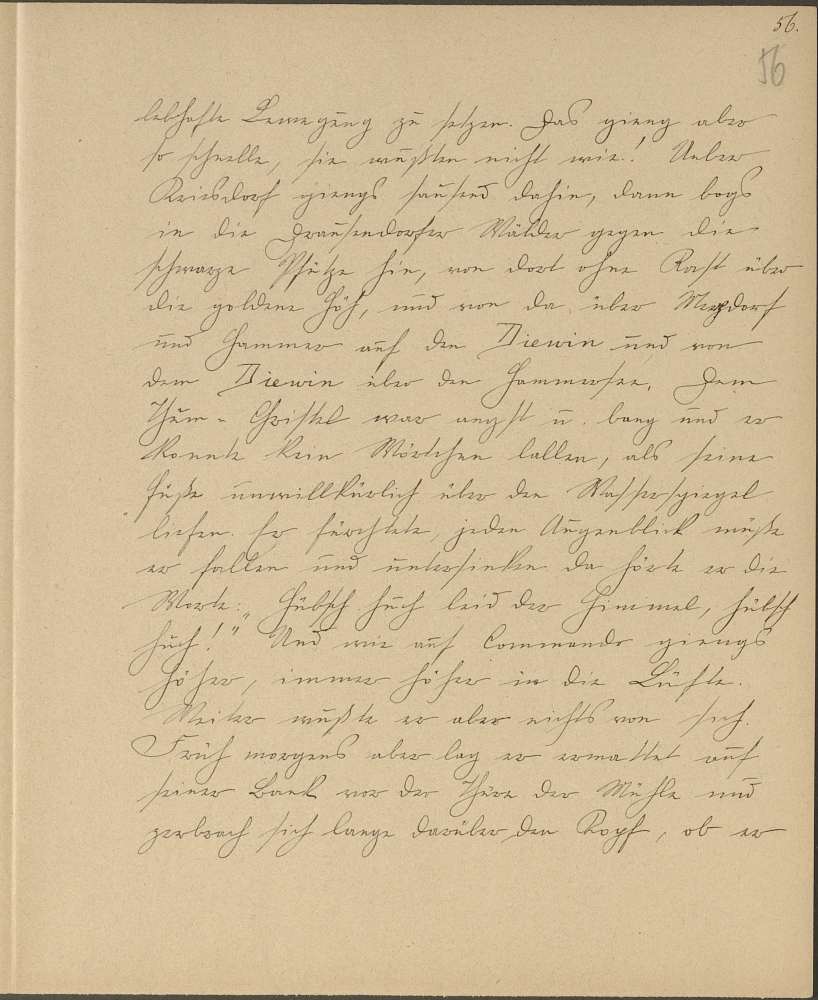 56.
56
lebhafte Bewegung zu setzen. Das gieng aber
so schnelle, sie wußten nicht wie.! Ueber
Kriesdorf giengs sausend dahin, dann bogs
in die Drausendorfer Wälder gegen die
schwarze Pfütze hin, von dort ohne Rast über
die goldene Höh, und von da über Merzdorf
und Hammer auf den Diewin und von
dem Diewin über den Hammersee. Dem
Thum-Christel war angst u. bang und er
konnte kein Wörtchen lallen, als seine
Füße unwillkürlich über den Wasserspiegel
liefen. Er fürchtete, jeden Augenblick müße
er fallen und untersinken da hörte er die
Worte: "Hübsch huch leid der Himmel, hübsch
huch!" Und wie auf Commando giengs
höher, immer höher in die Lüfte.
Weiter wußte er aber nichts von sich.
Früh morgens aber lag er ermattet auf
seiner Bank vor der Thüre der Mühle und
zerbrach sich lange darüber den Kopf, ob er